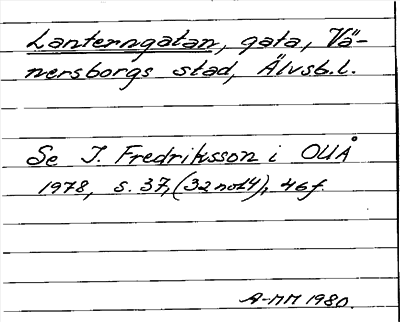 Lanterngatan, gata, Vä-
nersborgs stad, Älvsb.l.
Se I. Fredriksson i OUÅ
1978, s. 37, (32 not 4), 46 f.
A-MM 1980.